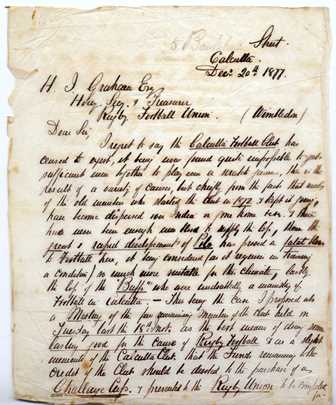 Street
Calcutta
Dec. 20th 1877.
H. I. Graham Esq
Hony Secy & Treasurer
Rugby Football Union. (Wimbledon)
Dear Sir,
I regret to say the Calcutta Football Club has
ceased to exist, it being now found quite impossible to get
sufficient men together to play even a scratch game, this is the
result of a variety of causes, but chiefly from the fact that many
of the old members who started the Club in 1872 & kept it going,
have been dispersed over India or gone home &
there been enough to supply the loss, then the
great & rapid development of Polo has proved a fatal blow
to Football here, it being considered (as it requires no training
or condition) so much more suitable for the climate, lastly
the loss of the "Buffs" who were undoubtedly a mainstay of
Football in Calcutta. - This being the case I proposed at
a Meeting of the few remaining Members of the Club held on
Tuesday last the 18th inst. as the best means of doing some
lasting good for the cause of Rugby Football & as a slight
memento of the Calcutta Club that the Funds remaining to the
credit of the Club should be devoted to the purchase of a
Challenge Cup & presented to the Rugby Union to be competed
for